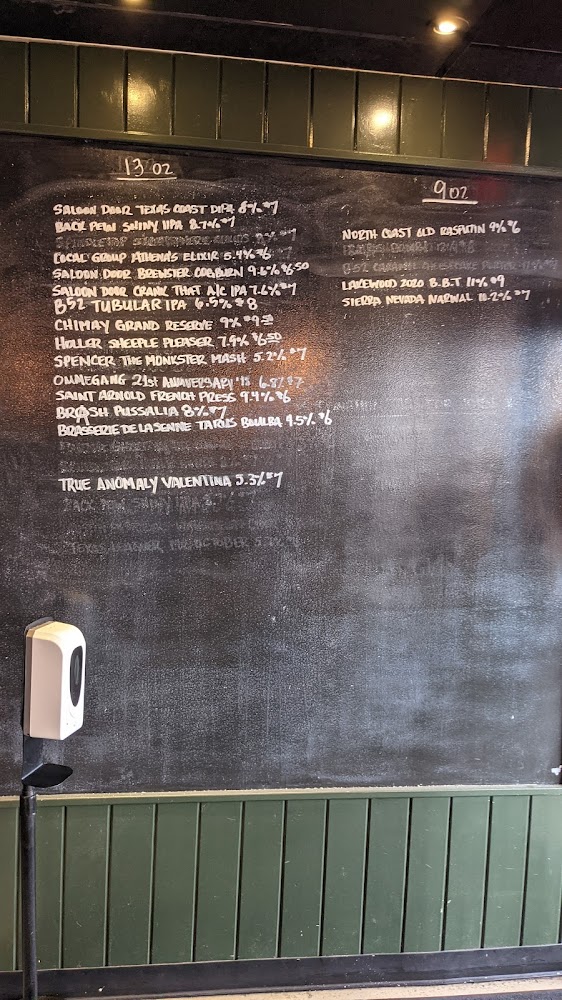 13 OZ
SALOON DOOR TEXAS COAST DIPA 8% $7
BACK PEW SHINY IIPA 8.7% $7
LOCAL GROUP ATHENA'S ELIXIR 5.4% $6
SALOON DOOR BREWSTER COGBURN 9.6% $6.50
SALOON DOOR CRANK THEFT A/C IPA 7.6% $7
B52 TUBULAR IPA 6.5% $8
CHIMAY GRAND RESERVE 9% $9.50
HOLLER SHEEPLE PLEASER 7.9% $6.50
SPENCER THE MONKSTER MASH 5.2% $7
OMMEGANG 21st ANNIVERSARY '18 6.8% $7
SAINT ARNOLD FRENCH PRESS 9.4% $6
BRASH PUSSALIA 8% $7
BRASSERIE DE LA SENNE TARAS BOULBA 4.5% $6
TRUE ANOMALY VALENTINA 5.3% $7
BACK PEW SHINY IIPA 8.7%
9 OZ
NORTH COAST OLD RASPUTIN 9% $6
LAKEWOOD 2020 B.B.T 11% $9
SIERRA NEVADA NARWAL 10.2% $7